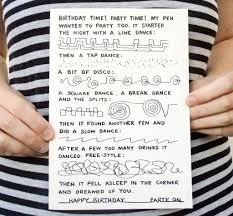 BIRTHDAY TIME! PARTY TIME! MY PEN
WANTED TO PARTY TOO. IT STARTED
THE NIGHT WITH A LINE DANCE:
THEN A TAP DANCE:
A BIT OF DISCO:
A SQUARE DANCE, A BREAK DANCE
AND THE SPLITS:
THEN IT FOUND ANOTHER PEN AND
DID A SLOW DANCE:
AFTER A FEW TOO MANY DRINKS IT
DANCED FREE-STYLE:
THEN IT FELL ASLEEP IN THE CORNER
AND DREAMED OF YOU.
HAPPY BIRTHDAY. PARTY ON.